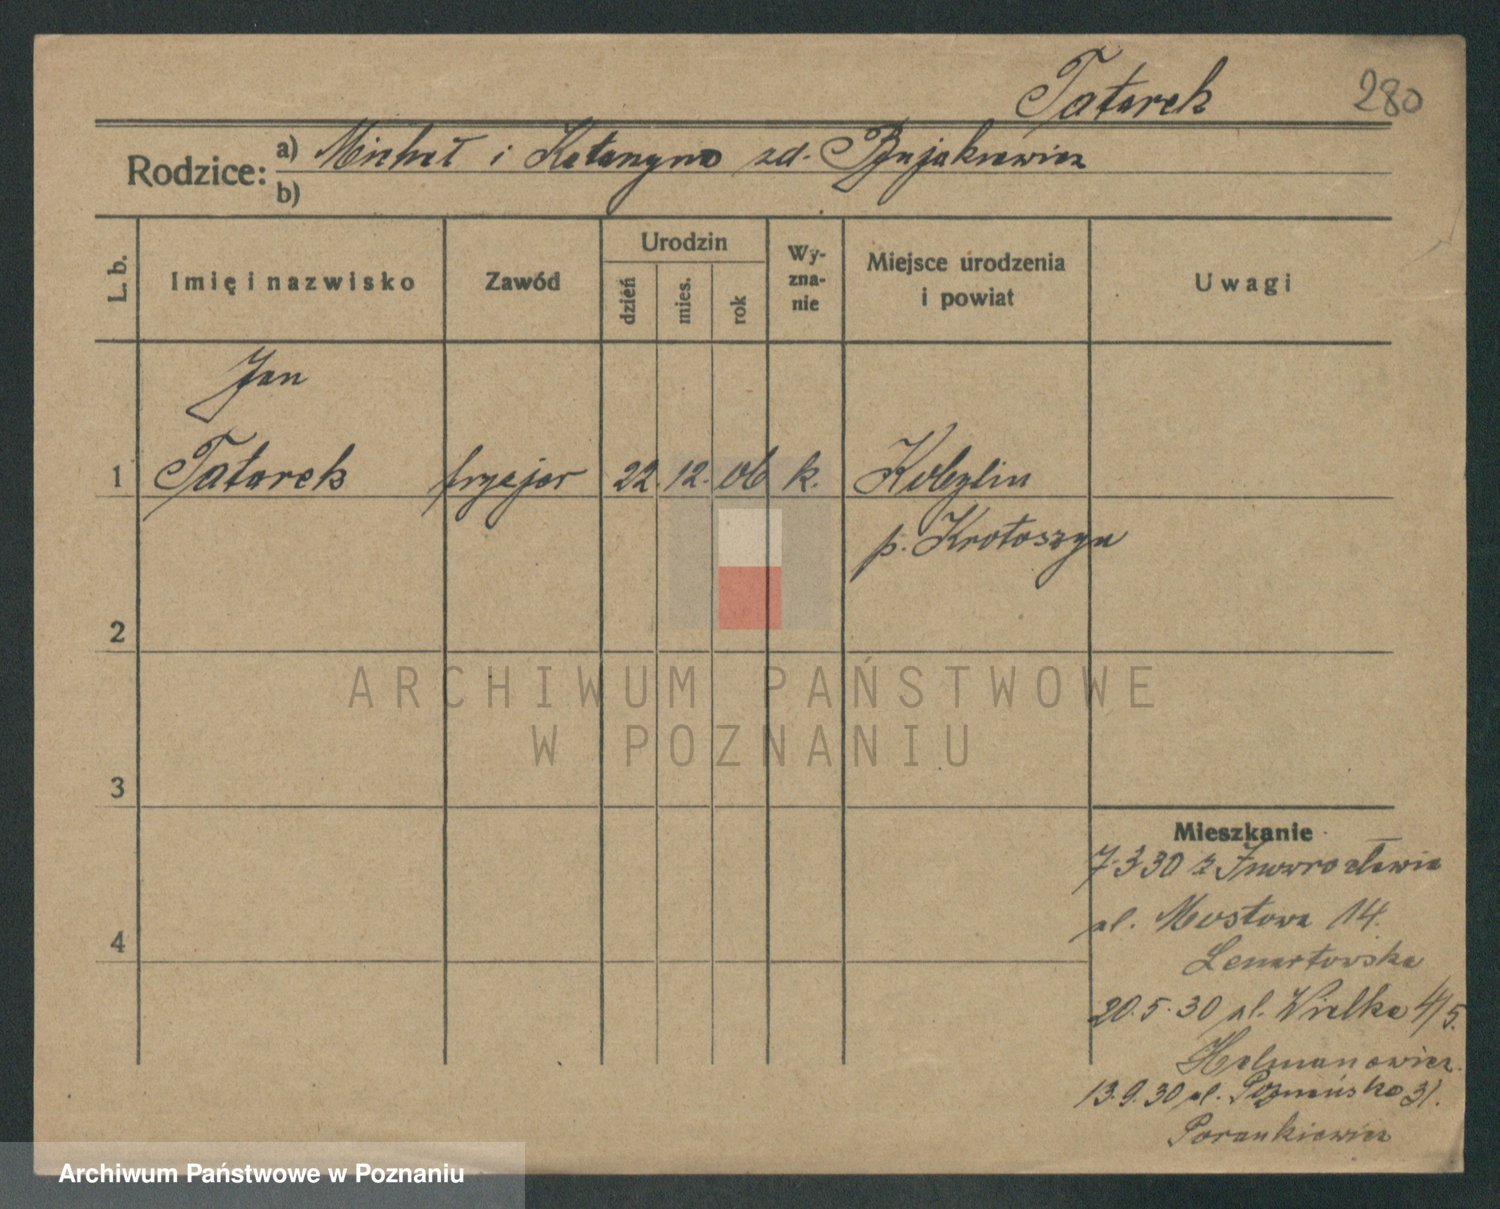 Tatarek 280
Rodzice: a) Michał i Katarzyna zd. Bujakiewicz
b)
L. b. Imię i nazwisko Zawód Urodzin dzień mies. rok Wy-zna-nie Miejsce urodzenia i powiat Uwagi
Jan
1 Tatarek fryzjer 22. 12. 06 k. Kobylin
p. Krotoszyn
2
3
4
Mieszkanie
7.3.30 z Inowrocławia
ul. Mostowa 14.
Lenartowska
20.5.30 ul. Wielka 4/5.
13.9.30 ul. Poznańska 31.
ARCHIWUM PAŃSTWOWE
W POZNANIU
Archiwum Państwowe w Poznaniu